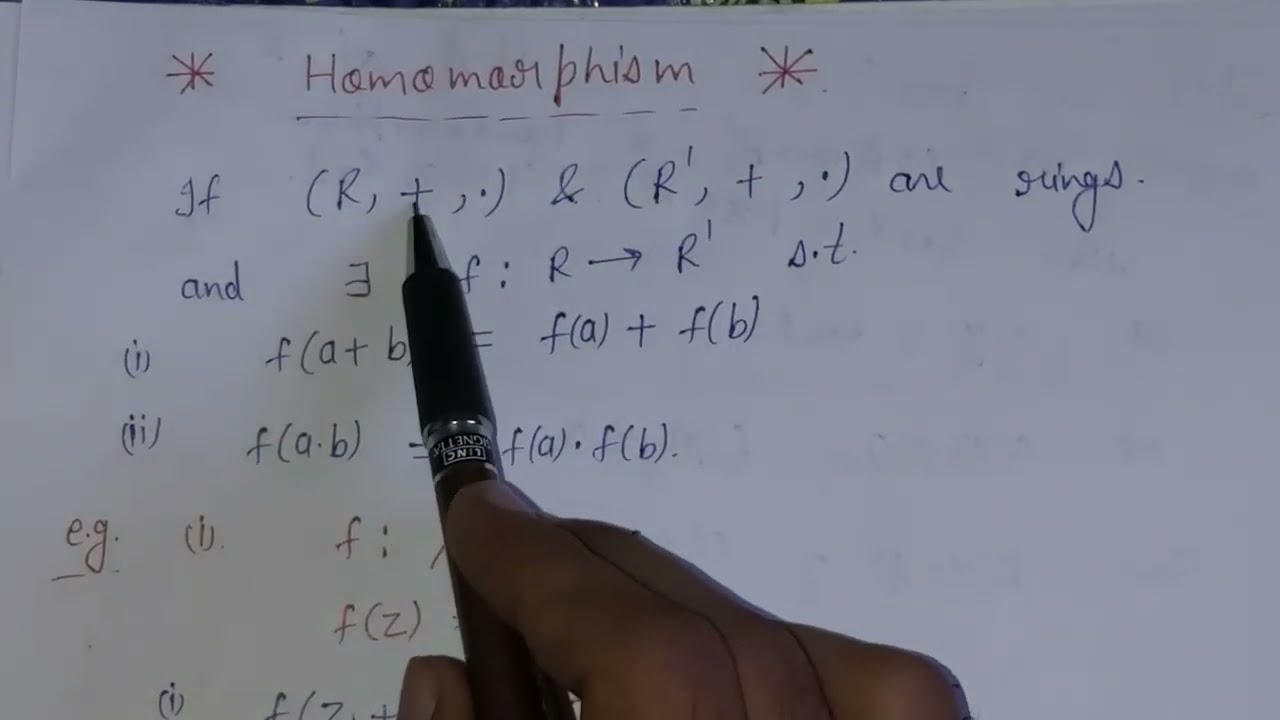 * Homomorphism *
If (R, +, ·) & (R', +, ·) are rings.
and ∃ f : R → R' s.t.
(i) f(a+ b = f(a) + f(b)
(ii) f(a·b) = f(a)·f(b).
e.g. (i). f :
f(z) =
(i) f(z +
LINC
SIGNETTA